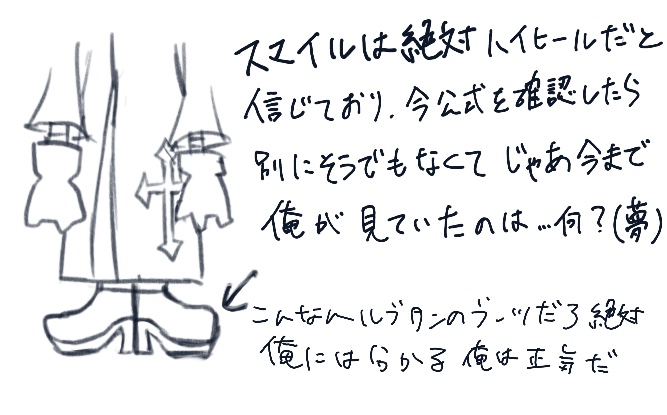 スマイルは絶対ハイヒールだと
信じており、今公式を確認したら
別にそうでもなくて じゃあ今まで
俺が見ていたのは…何？(夢)
こんなんルブタンのブーツだろ絶対
俺には分かる 俺は正気だ